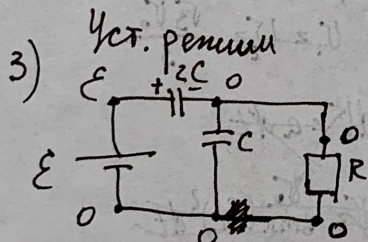 Уст. режим
3)
ℰ + 2C - 0
C 0
ℰ R
0 0 0